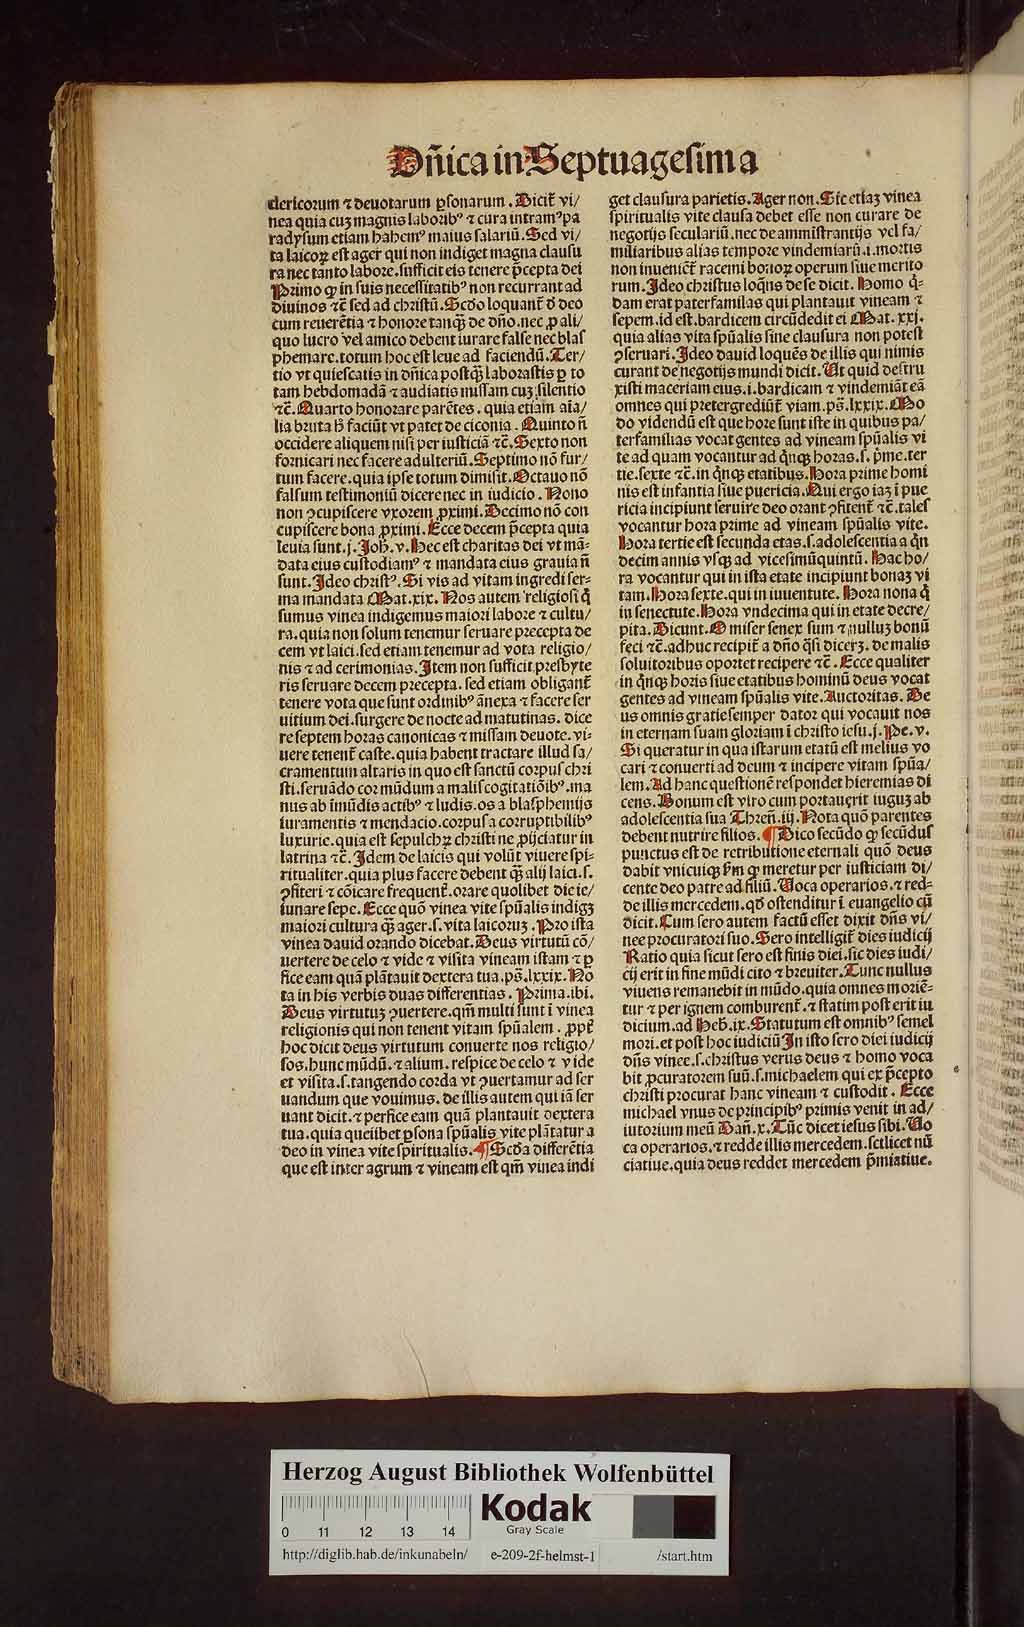 Dñica in Septuagesima
clericorum ⁊ deuotarum ꝑsonarum. Dicit᷑ vi/
nea quia cuꝫ magnis laboribꝰ ⁊ cura intramꝰ pa
radysum etiam habemꝰ maius salariū. Sed vi/
ta laicoꝝ est ager qui non indiget magna clausu
ra nec tanto labore. sufficit eis tenere p̄cepta dei
Primo ꝙ in suis necessitatibꝰ non recurrant ad
diuinos ⁊c̄ sed ad christū. Scd̄o loquant᷑ d̄ deo
cum reuerētia ⁊ honore tanqꝫ̄ de dn̄o. nec ꝓ ali/
quo lucro vel amico debent iurare false nec blas
phemare. totum hoc est leue ad faciendū. Ter/
tio vt quiescatis in dn̄ica postqꝫ̄ laborastis ꝑ to
tam hebdomadā ⁊ audiatis missam cuꝫ silentio
⁊c̄. Quarto honorare parētes. quia etiam aīa/
lia bruta h̄ faciūt vt patet de ciconia. Quinto n̄
occidere aliquem nisi per iusticiā ⁊c̄. Sexto non
fornicari nec facere adulteriū. Septimo nō fur/
tum facere. quia ipse totum dimisit. Octauo nō
falsum testimoniū dicere nec in iudicio. Nono
non ꝯcupiscere vxorem ꝓximi. Decimo nō con
cupiscere bona ꝓximi. Ecce decem p̄cepta quia
leuia sunt. j. Joh̄. v. Hec est charitas dei vt mā-
data eius custodiamꝰ ⁊ mandata eius grauia n̄
sunt. Ideo christꝰ. Si vis ad vitam ingredi ser-
ua mandata Mat. xix. Nos autem religiosi q̄
sumus vinea indigemus maiori labore ⁊ cultu/
ra. quia non solum tenemur seruare precepta de
cem vt laici. sed etiam tenemur ad vota religio/
nis ⁊ ad cerimonias. Item non sufficit presbyte
ris seruare decem precepta. sed etiam obligant᷑
tenere vota que sunt ordinibꝰ ānexa ⁊ facere ser
uitium dei. surgere de nocte ad matutinas. dice
re septem horas canonicas ⁊ missam deuote. vi-
uere tenent᷑ caste. quia habent tractare illud sa/
cramentum altaris in quo est sanctū corpus chri
sti. seruādo cor mūdum a malis cogitatiōibꝰ. ma
nus ab īmūdis actibꝰ ⁊ ludis. os a blasphemijs
iuramentis ⁊ mendacio. corpus a corruptibilibꝰ
luxurie. quia est sepulchꝝ christi ne ꝓijciatur in
latrina ⁊c̄. Idem de laicis qui volūt viuere spi-
ritualiter. quia plus facere debent qꝫ̄ alij laici. s.
ꝯfiteri ⁊ cōicare frequent᷑. orare quolibet die ie/
iunare sepe. Ecce quō vinea vite sp̄ualis indigꝫ
maiori cultura qꝫ̄ ager. s. vita laicoruꝫ. Pro ista
vinea dauid orando dicebat. Deus virtutū cō/
uertere de celo ⁊ vide ⁊ visita vineam istam ⁊ ꝑ
fice eam quā plātauit dextera tua. ps̄. lxxix. No
ta in his verbis duas differentias. Prima. ibi.
Deus virtutuꝫ ꝯuertere. qm̄ multi sunt ī vinea
religionis qui non tenent vitam sp̄ualem. ꝓpt᷑
hoc dicit deus virtutum conuerte nos religio/
sos. hunc mūdū. ⁊ alium. respice de celo ⁊ vide
et visita. s. tangendo corda vt ꝯuertamur ad ser
uandum que vouimus. de illis autem qui iā ser
uant dicit. ⁊ perfice eam quā plantauit dextera
tua. quia quelibet ꝑsona sp̄ualis vite plātatur a
deo in vinea vite spiritualis. ¶ Scd̄a differētia
que est inter agrum ⁊ vineam est qm̄ vinea indi
get clausura parietis. Ager non. Sic etiaꝫ vinea
spiritualis vite clausa debet esse non curare de
negotijs seculariū. nec de amministrantijs vel fa/
miliaribus alias tempore vindemiarū. i. mortis
non inuenict᷑ racemi bonoꝝ operum siue merito
rum. Ideo christus loq̄ns de se dicit. Homo q̄-
dam erat paterfamilas qui plantauit vineam ⁊
sepem. id est. bardicem circūdedit ei Mat. xxj.
quia alias vita sp̄ualis sine clausura non potest
ꝯseruari. Ideo dauid loquēs de illis qui nimis
curant de negotijs mundi dicit. Ut quid destru
xisti maceriam eius. i. bardicam ⁊ vindemiāt eā
omnes qui pretergrediūt᷑ viam. ps̄. lxxix. Mo
do videndū est que hore sunt iste in quibus pa/
terfamilias vocat gentes ad vineam sp̄ualis vi
te ad quam vocantur ad q̄nqꝫ horas. s. p̄me. ter
tie. sexte ⁊c̄. in q̄nqꝫ etatibus. Hora prime homi
nis est infantia siue puericia. Qui ergo iaꝫ ī pue
ricia incipiunt seruire deo orant ꝯfitent᷑ ⁊c̄. tales
vocantur hora prime ad vineam sp̄ualis vite.
Hora tertie est secunda etas. s. adolescentia a q̄n
decim annis vsqꝫ ad vicesimūquintū. Hac ho/
ra vocantur qui in ista etate incipiunt bonaꝫ vi
tam. Hora sexte. qui in iuuentute. Hora nona q̄
in senectute. Hora vndecima qui in etate decre/
pita. Dicunt. O miser senex sum ⁊ nulluꝫ bonū
feci ⁊c̄. adhuc recipit᷑ a dn̄o q̄si dicerꝫ. de malis
solutoribus oportet recipere ⁊c̄. Ecce qualiter
in q̄nqꝫ horis siue etatibus hominū deus vocat
gentes ad vineam sp̄ualis vite. Auctoritas. De
us omnis gratie semper dator qui vocauit nos
in eternam suam gloriam ī christo iesu. j. Pe. v.
Si queratur in qua istarum etatū est melius vo
cari ⁊ conuerti ad deum ⁊ incipere vitam sp̄ua/
lem. Ad hanc questionē respondet hieremias di
cens. Bonum est viro cum portauerit iuguꝫ ab
adolescentia sua Thren̄. iij. Nota quō parentes
debent nutrire filios. ¶ Dico secūdo ꝙ secūdus
punctus est de retributione eternali quō deus
dabit vnicuiqꝫ ẜm ꝙ meretur per iusticiam di/
cente deo patre ad filiū. Uoca operarios. ⁊ red-
de illis mercedem. qd̄ ostenditur ī euangelio cū
dicit. Cum sero autem factū esset dixit dn̄s vi/
nee procuratori suo. Sero intelligit᷑ dies iudicij
Ratio quia sicut sero est finis diei. sic dies iudi/
cij erit in fine mūdi cito ⁊ breuiter. Tunc nullus
viuens remanebit in mūdo. quia omnes moriē-
tur ⁊ per ignem comburent᷑. ⁊ statim post erit iu
dicium. ad Heb̄. ix. Statutum est omnibꝰ semel
mori. et post hoc iudiciū In isto sero diei iudicij
dn̄s vinee. s. christus verus deus ⁊ homo voca
bit ꝓcuratorem suū. s. michaelem qui ex p̄cepto
christi procurat hanc vineam ⁊ custodit. Ecce
michael vnus de principibꝰ primis venit in ad/
iutorium meū Dan̄. x. Tūc dicet iesus sibi. Uo
ca operarios. ⁊ redde illis mercedem. scilicet nū
ciatiue. quia deus reddet mercedem p̄miatiue.
Herzog August Bibliothek Wolfenbüttel
0 11 12 13 14
Kodak
Gray Scale
http://diglib.hab.de/inkunabeln/ e-209-2f-helmst-1 /start.htm